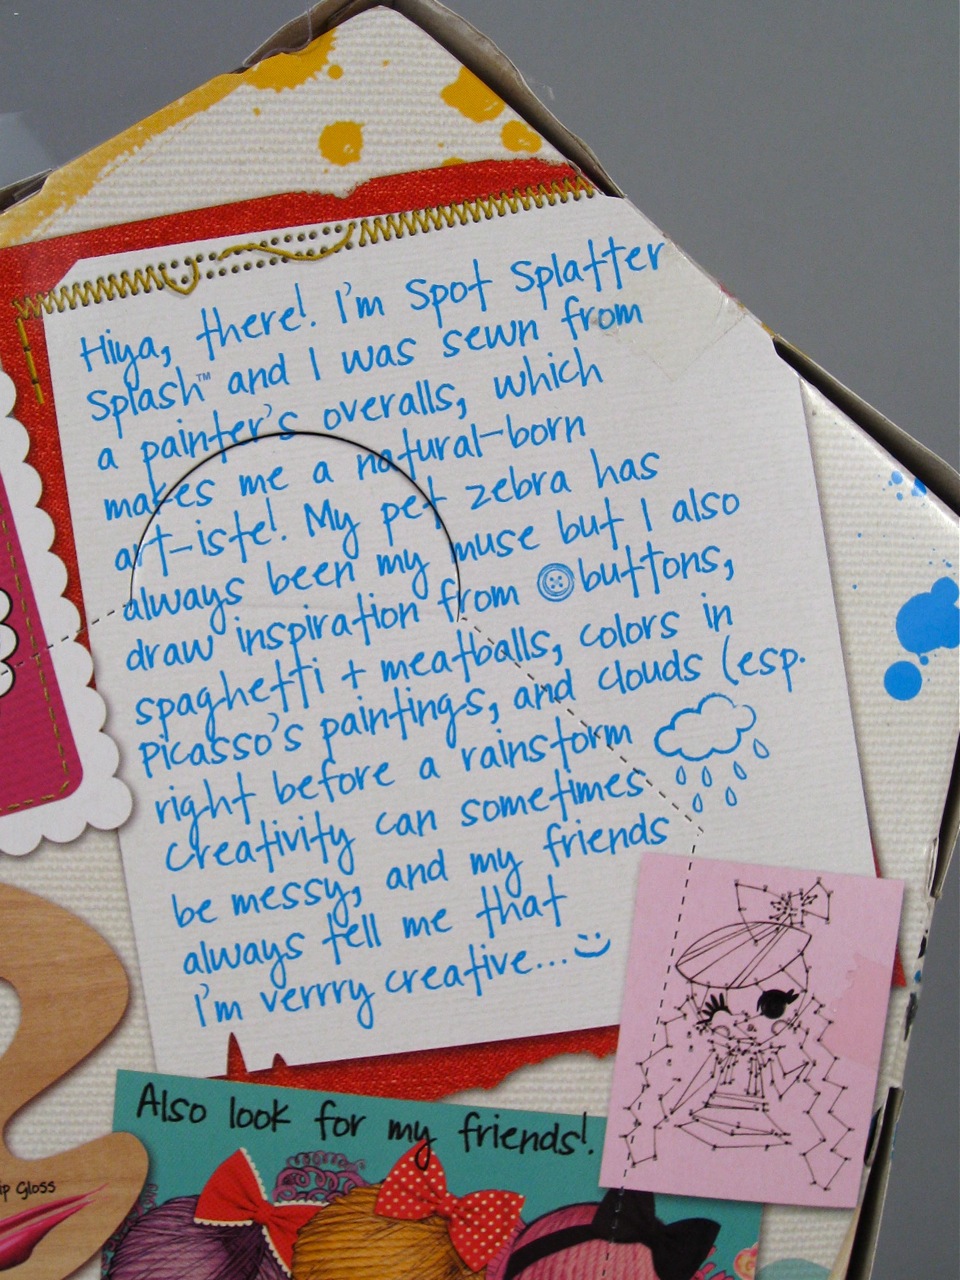 Hiya, there! I'm Spot Splatter
Splash™ and I was sewn from
a painter's overalls, which
makes me a natural-born
art-iste! My pet zebra has
always been my muse but I also
draw inspiration from buttons,
spaghetti + meatballs, colors in
Picasso's paintings, and clouds (esp.
right before a rainstorm
Creativity can sometimes
be messy, and my friends
always tell me that
I'm verrry creative...
Also look for my friends!
ip Gloss